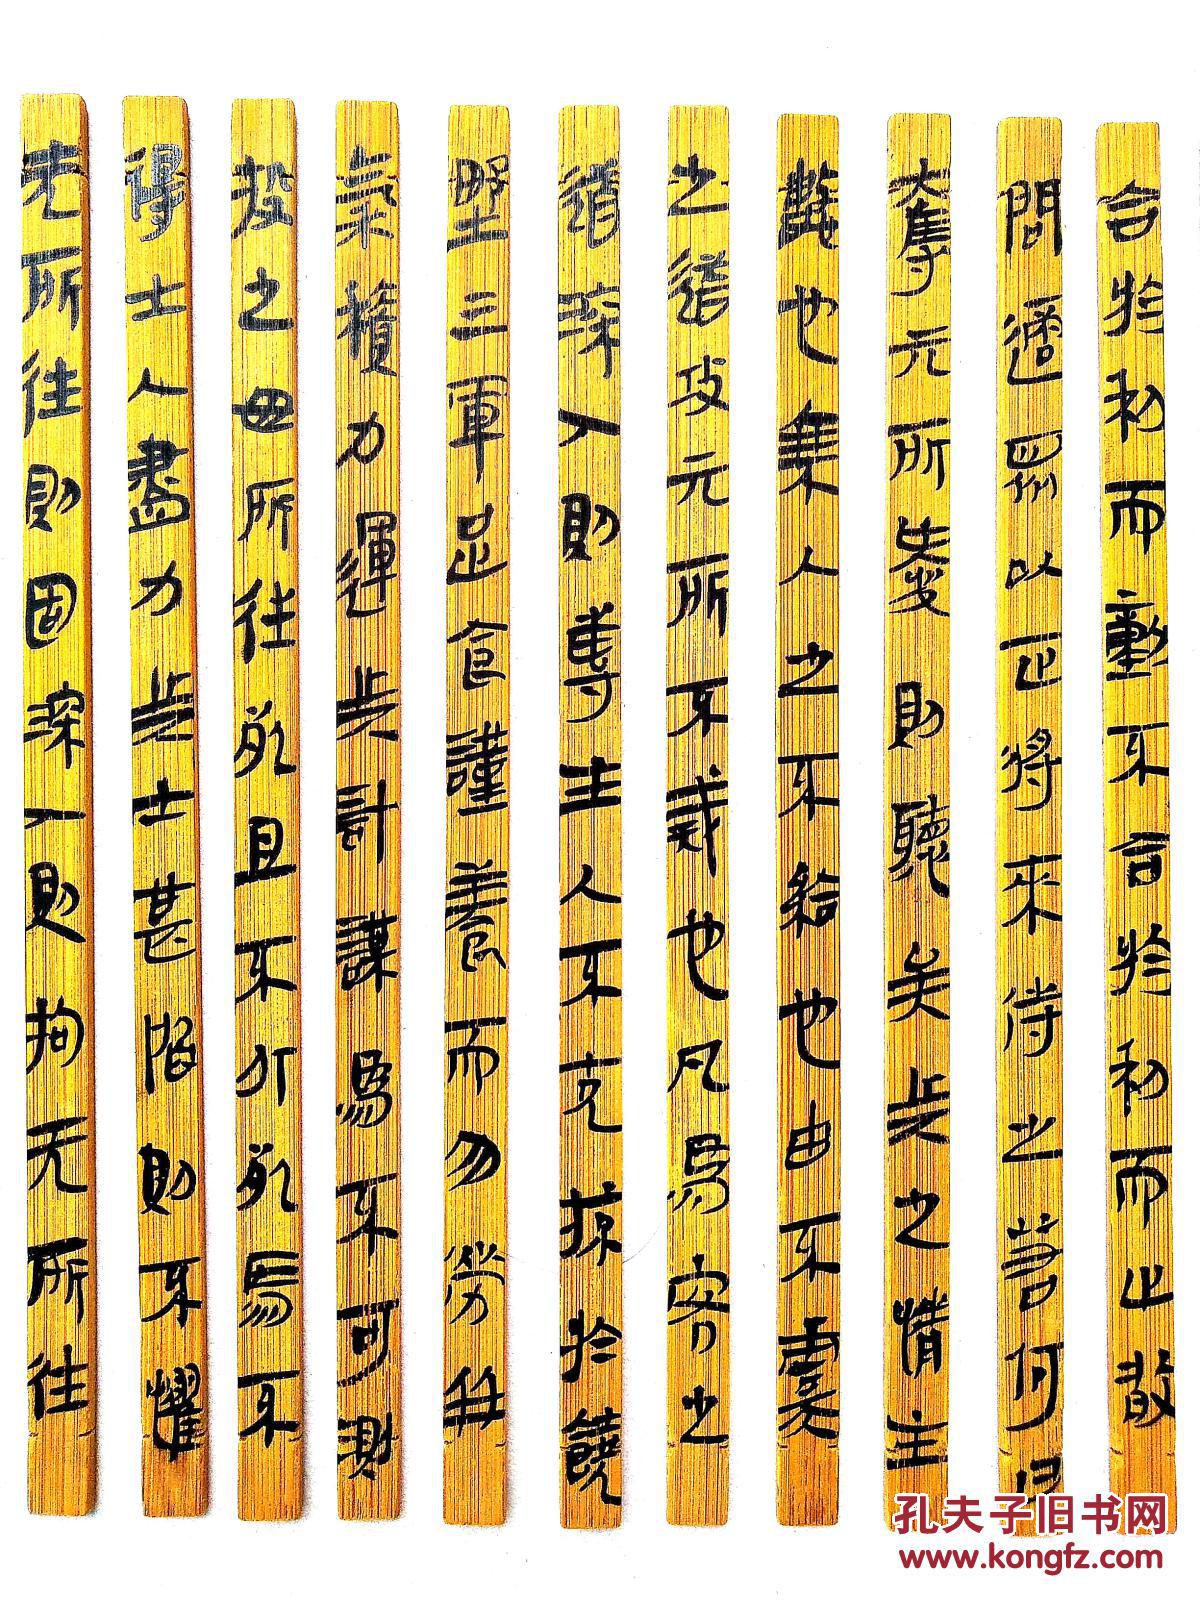 合於利而動不合於利而止敢
問適眾以正將來侍之若何曰
奪亓所愛則聽矣兵之情主
數也乘人之不給也由不虞
之道攻亓所不戒也凡為客之
道深入則專主人不克掠於饒
野三軍足食謹養而勿勞并
氣積力運兵計謀為不可測
投之毋所往死且不北死焉不
得士人盡力兵士甚陷則不懼
无所往則固深入則拘无所往
孔夫子旧书网
www.kongfz.com